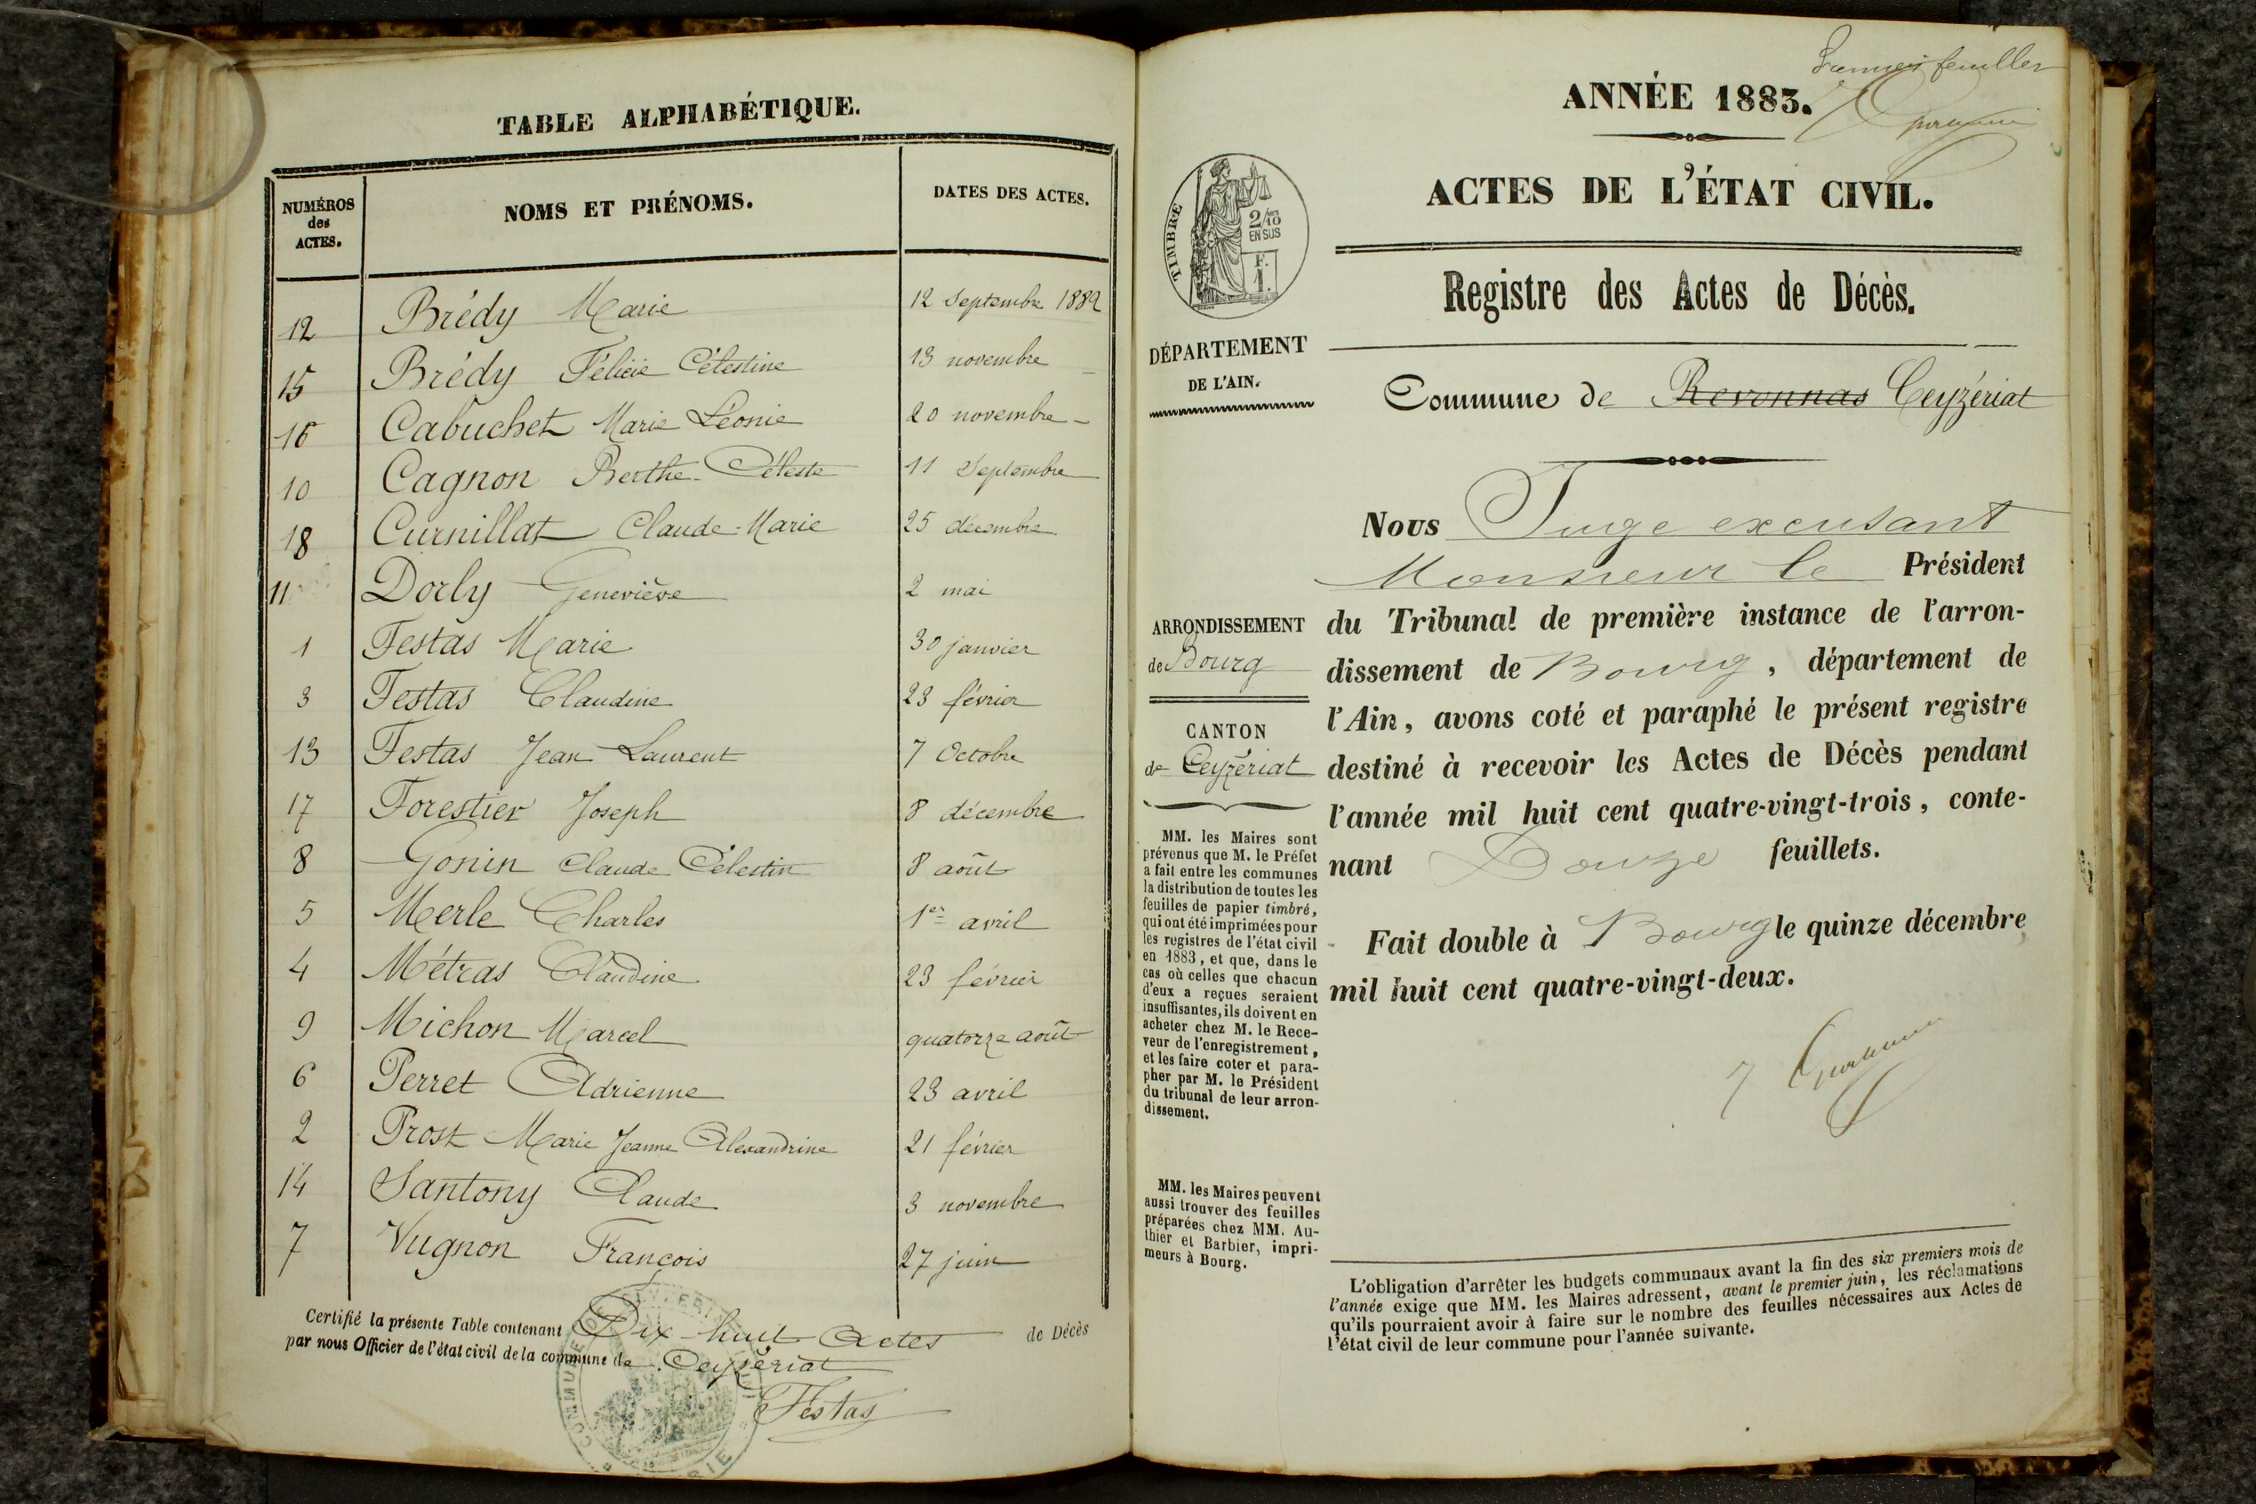 TABLE ALPHABÉTIQUE.
NUMÉROS des ACTES. NOMS ET PRÉNOMS. DATES DES ACTES.
12 Brédy Marie 12 Septembre 1882
15 Brédy Félicie Célestine 13 novembre –
16 Cabuchet Marie Léonie 20 novembre –
10 Cagnon Berthe-Céleste 11 Septembre
18 Curnillat Claude-Marie 25 décembre
11 Dorly Geneviève 2 mai
1 Festas Marie 30 janvier
3 Festas Claudine 23 février
13 Festas Jean Laurent 7 Octobre
17 Forestier Joseph 8 décembre
8 Gonin Claude Célestin 8 août
5 Merle Charles 1er avril
4 Métras Claudine 23 février
9 Michon Marcel quatorze août
6 Perret Adrienne 23 avril
2 Prost Marie Jeanne Alexandrine 21 février
14 Santony Claude 3 novembre
7 Vugnon François 27 juin
Certifié la présente Table contenant Dix-huit Actes de Décès
par nous Officier de l'état civil de la commune de Ceyzériat
Festas
feuillet
ANNÉE 1883.
ACTES DE L'ÉTAT CIVIL.
TIMBRE
2/10 EN SUS
F. 1.
Registre des Actes de Décès.
DÉPARTEMENT
DE L'AIN.
Commune de Revonnas Ceyzériat
Nous Juge excusant
Monsieur le Président
du Tribunal de première instance de l'arron-
dissement de Bourg, département de
l'Ain, avons coté et paraphé le présent registre
destiné à recevoir les Actes de Décès pendant
l'année mil huit cent quatre-vingt-trois, conte-
nant Douze feuillets.
Fait double à Bourg le quinze décembre
mil huit cent quatre-vingt-deux.
ARRONDISSEMENT
de Bourg
CANTON
de Ceyzériat
MM. les Maires sont
prévenus que M. le Préfet
a fait entre les communes
la distribution de toutes les
feuilles de papier timbré,
qui ont été imprimées pour
les registres de l'état civil
en 1883, et que, dans le
cas où celles que chacun
d'eux a reçues seraient
insuffisantes, ils doivent en
acheter chez M. le Rece-
veur de l'enregistrement,
et les faire coter et para-
pher par M. le Président
du tribunal de leur arron-
dissement.
MM. les Maires peuvent
aussi trouver des feuilles
préparées chez MM. Au-
thier et Barbier, impri-
meurs à Bourg.
L'obligation d'arrêter les budgets communaux avant la fin des six premiers mois de
l'année exige que MM. les Maires adressent, avant le premier juin, les réclamations
qu'ils pourraient avoir à faire sur le nombre des feuilles nécessaires aux Actes de
l'état civil de leur commune pour l'année suivante.